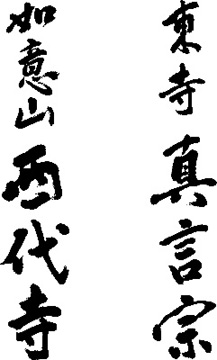 東寺真言宗
如意山西代寺